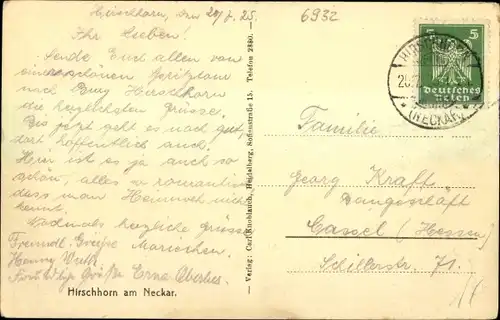 Hirschhorn, den 20/7.25.
6932
Ihr Lieben!
Sende Euch allen von
einer schönen Spritztour
nach Burg Hirschhorn
die herzlichsten Grüsse.
Bis jetzt geht es noch gut,
dort hoffentlich auch.
Hier ist es ja auch so
schön, alles so romantisch
dass man Heimweh nicht
kennt.
Nochmals herzliche Grüsse
Freundl. Grüße Mariechen.
Henny
Grüße Erna
Hirschhorn am Neckar.
Verlag: Carl Knoblauch, Heidelberg, Sofienstraße 15. Telefon 2380.
5 5
Deutsches
Reich
HIRSCHHORN
(NECKAR)
Familie
Georg Kraft
Baugeschäft
Cassel (Hessen)
Schillerstr. 71.